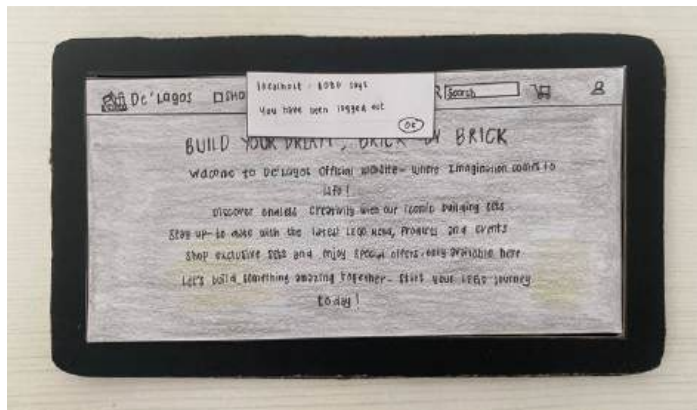 localhost: 8080 says
You have been logged out
OK
De'Lagos
SHO
Search
BUILD YOUR DREAM, BRICK BY BRICK
Welcome to De'Lagos Official Website- where Imagination comes to
life!
Discover endless creativity with our iconic building sets
Stay up-to date with the latest LEGO News, Products and events
Shop exclusive sets and enjoy special offers-only available here
Let's build something amazing together- Start your LEGO journey
today!